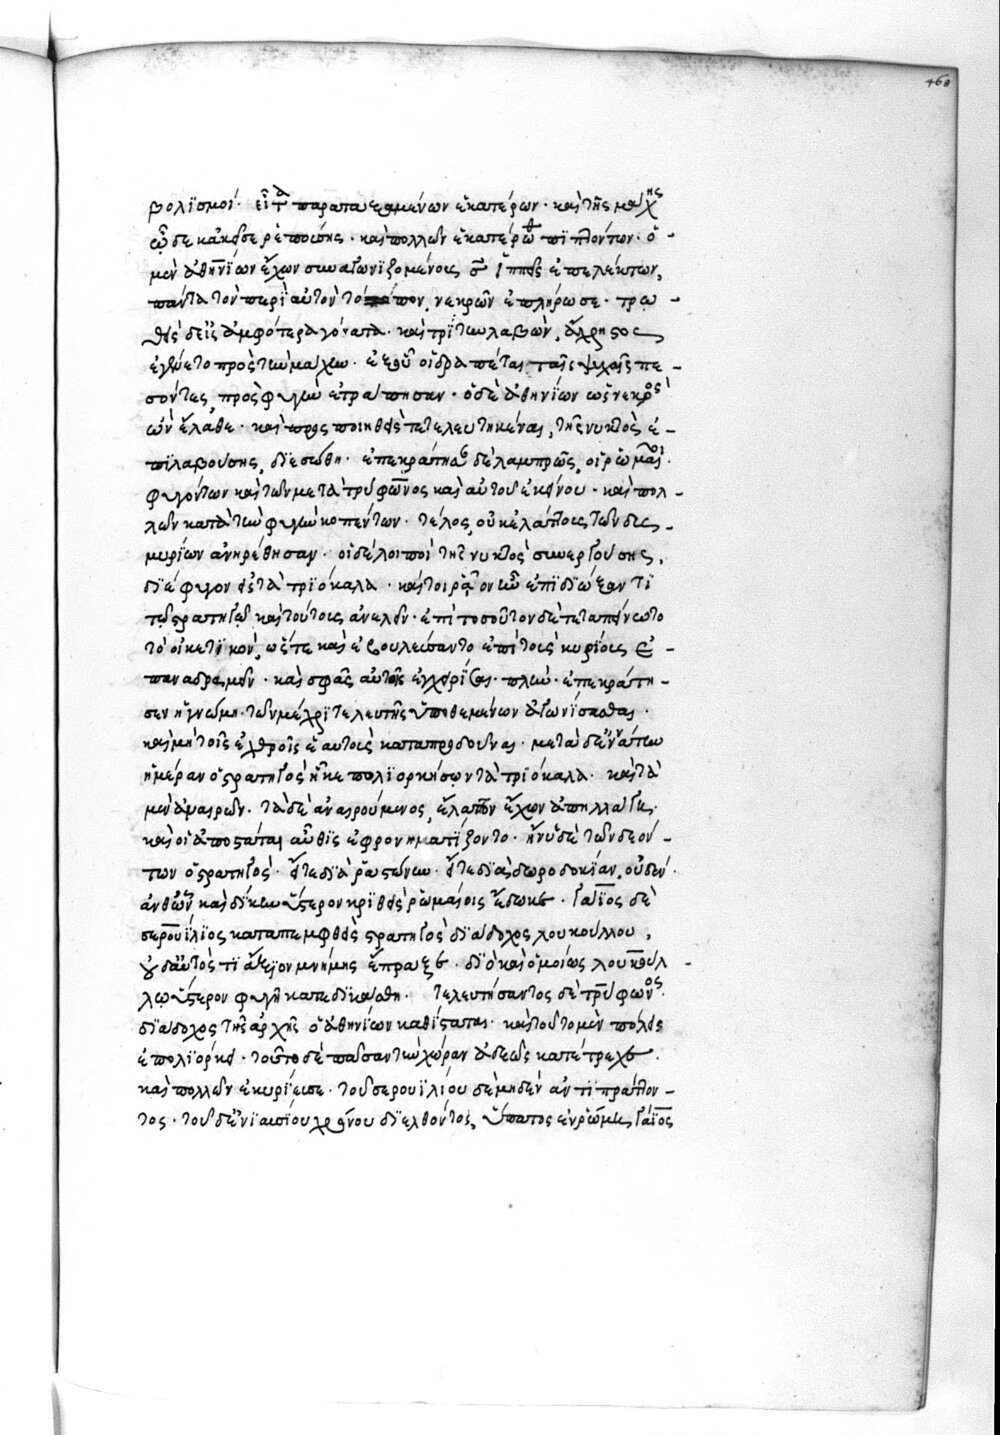 468
βολϊσμοί· εἶτα παραταξαμένων ἑκατέρων· καὶ τῆς μάχης
ὧδε κἀκεῖσε ῥεπούσης· καὶ πολλῶν ἑκατέρωθεν πιπτόντων· ὁ
μὲν ἀθηνίων ἔχων συναγωνιζομένους σ̅ ἱππεῖς ἐπιλέκτους,
πάντα τὸν περὶ αὐτὸν τόπον, νεκρῶν ἐπλήρωσε· τρω
θεὶς δὲ εἰς ἀμφότερα γόνατα· καὶ τρίτην λαβὼν, ἄχρηστος
ἐγένετο πρὸς τὴν μάχην· ἐξ οὗ οἱ δραπέται ταῖς ψυχαῖς πε
σόντες, πρὸς φυγὴν ἐτράπησαν· ὁ δὲ ἀθηνίων ὡς νεκρὸς
ὢν ἔλαθε· καὶ προσποιηθεὶς τετελευτηκέναι, τῆς νυκτὸς ἐ
πιλαβούσης, διεσώθη· ἐπεκράτησαν δὲ λαμπρῶς, οἱ ῥωμαῖοι·
φυγόντων καὶ τῶν μετὰ τρύφωνος καὶ αὐτοῦ ἐκείνου· καὶ πολ
λῶν κατὰ τὴν φυγὴν κοπέντων· τέλος, οὐκ ἐλάττους τῶν δισ
μυρίων ἀνῃρέθησαν· οἱ δὲ λοιποὶ τῆς νυκτὸς συνεργούσης,
διέφυγον εἰς τὰ τριόκαλα· καίτοι ῥᾷον ἦν ἐπιδιώξαντι
τῷ στρατηγῷ καὶ τούτους ἀνελεῖν· ἐπὶ τοσοῦτον δὲ τεταπείνωτο
τὸ οἰκετικὸν, ὥστε καὶ ἐβουλεύσαντο ἐπὶ τοὺς κυρίους ἐ
παναδραμεῖν· καὶ σφᾶς αὐτοὺς ἐγχειρίσαι· πλὴν· ἐπεκράτη
σεν ἡ γνώμη· τῶν μέχρι τελευτῆς ὑποθεμένων ἀγωνίσασθαι·
καὶ μὴ τοῖς ἐχθροῖς ἑαυτοὺς καταπροδοῦναι· μετὰ δὲ ἐννάτην
ἡμέραν ὁ στρατηγὸς ἧκε πολιορκήσων τὰ τριόκαλα· καὶ τὰ
μὲν ἀναιρῶν· τὰ δὲ ἀναιρούμενος, ἔλαττον ἔχων ἀπηλλάγη·
καὶ οἱ ἀποστάται αὖθις ἐφρονηματίζοντο· ἤνυσε τῶν δεόν
των ὁ στρατηγὸς· εἴτε διὰ ῥᾳστώνην· εἴτε διὰ δωροδοκίαν, οὐδέν·
ἀνθ ὧν καὶ δίκην ὕστερον κριθεὶς ῥωμαίοις ἔδωκε· Γάϊος δὲ
σερουίλιος καταπεμφθεὶς στρατηγὸς διάδοχος λουκούλλου,
οὐδ αὐτός τι ἄξιον μνήμης ἔπραξε· διὸ καὶ ὁμοίως λουκούλ
λῳ ὕστερον φυγῇ κατεδικάσθη· τελευτήσαντος δὲ τρύφωνος·
διάδοχος τῆς ἀρχῆς ὁ ἀθηνίων καθίσταται· καὶ τοῦτο μὲν πόλεις
ἐπολιόρκει· τοῦτο δὲ πᾶσαν τὴν χώραν ἀδεῶς κατέτρεχε·
καὶ πολλῶν ἐκυρίευσε· τοῦ σερουϊλίου δὲ μηδὲν ἀντιπράττον
τος· τοῦ δὲ ἐνιαυσίου χρόνου διελθόντος, ὕπατος ἐν ῥώμῃ Γάϊος